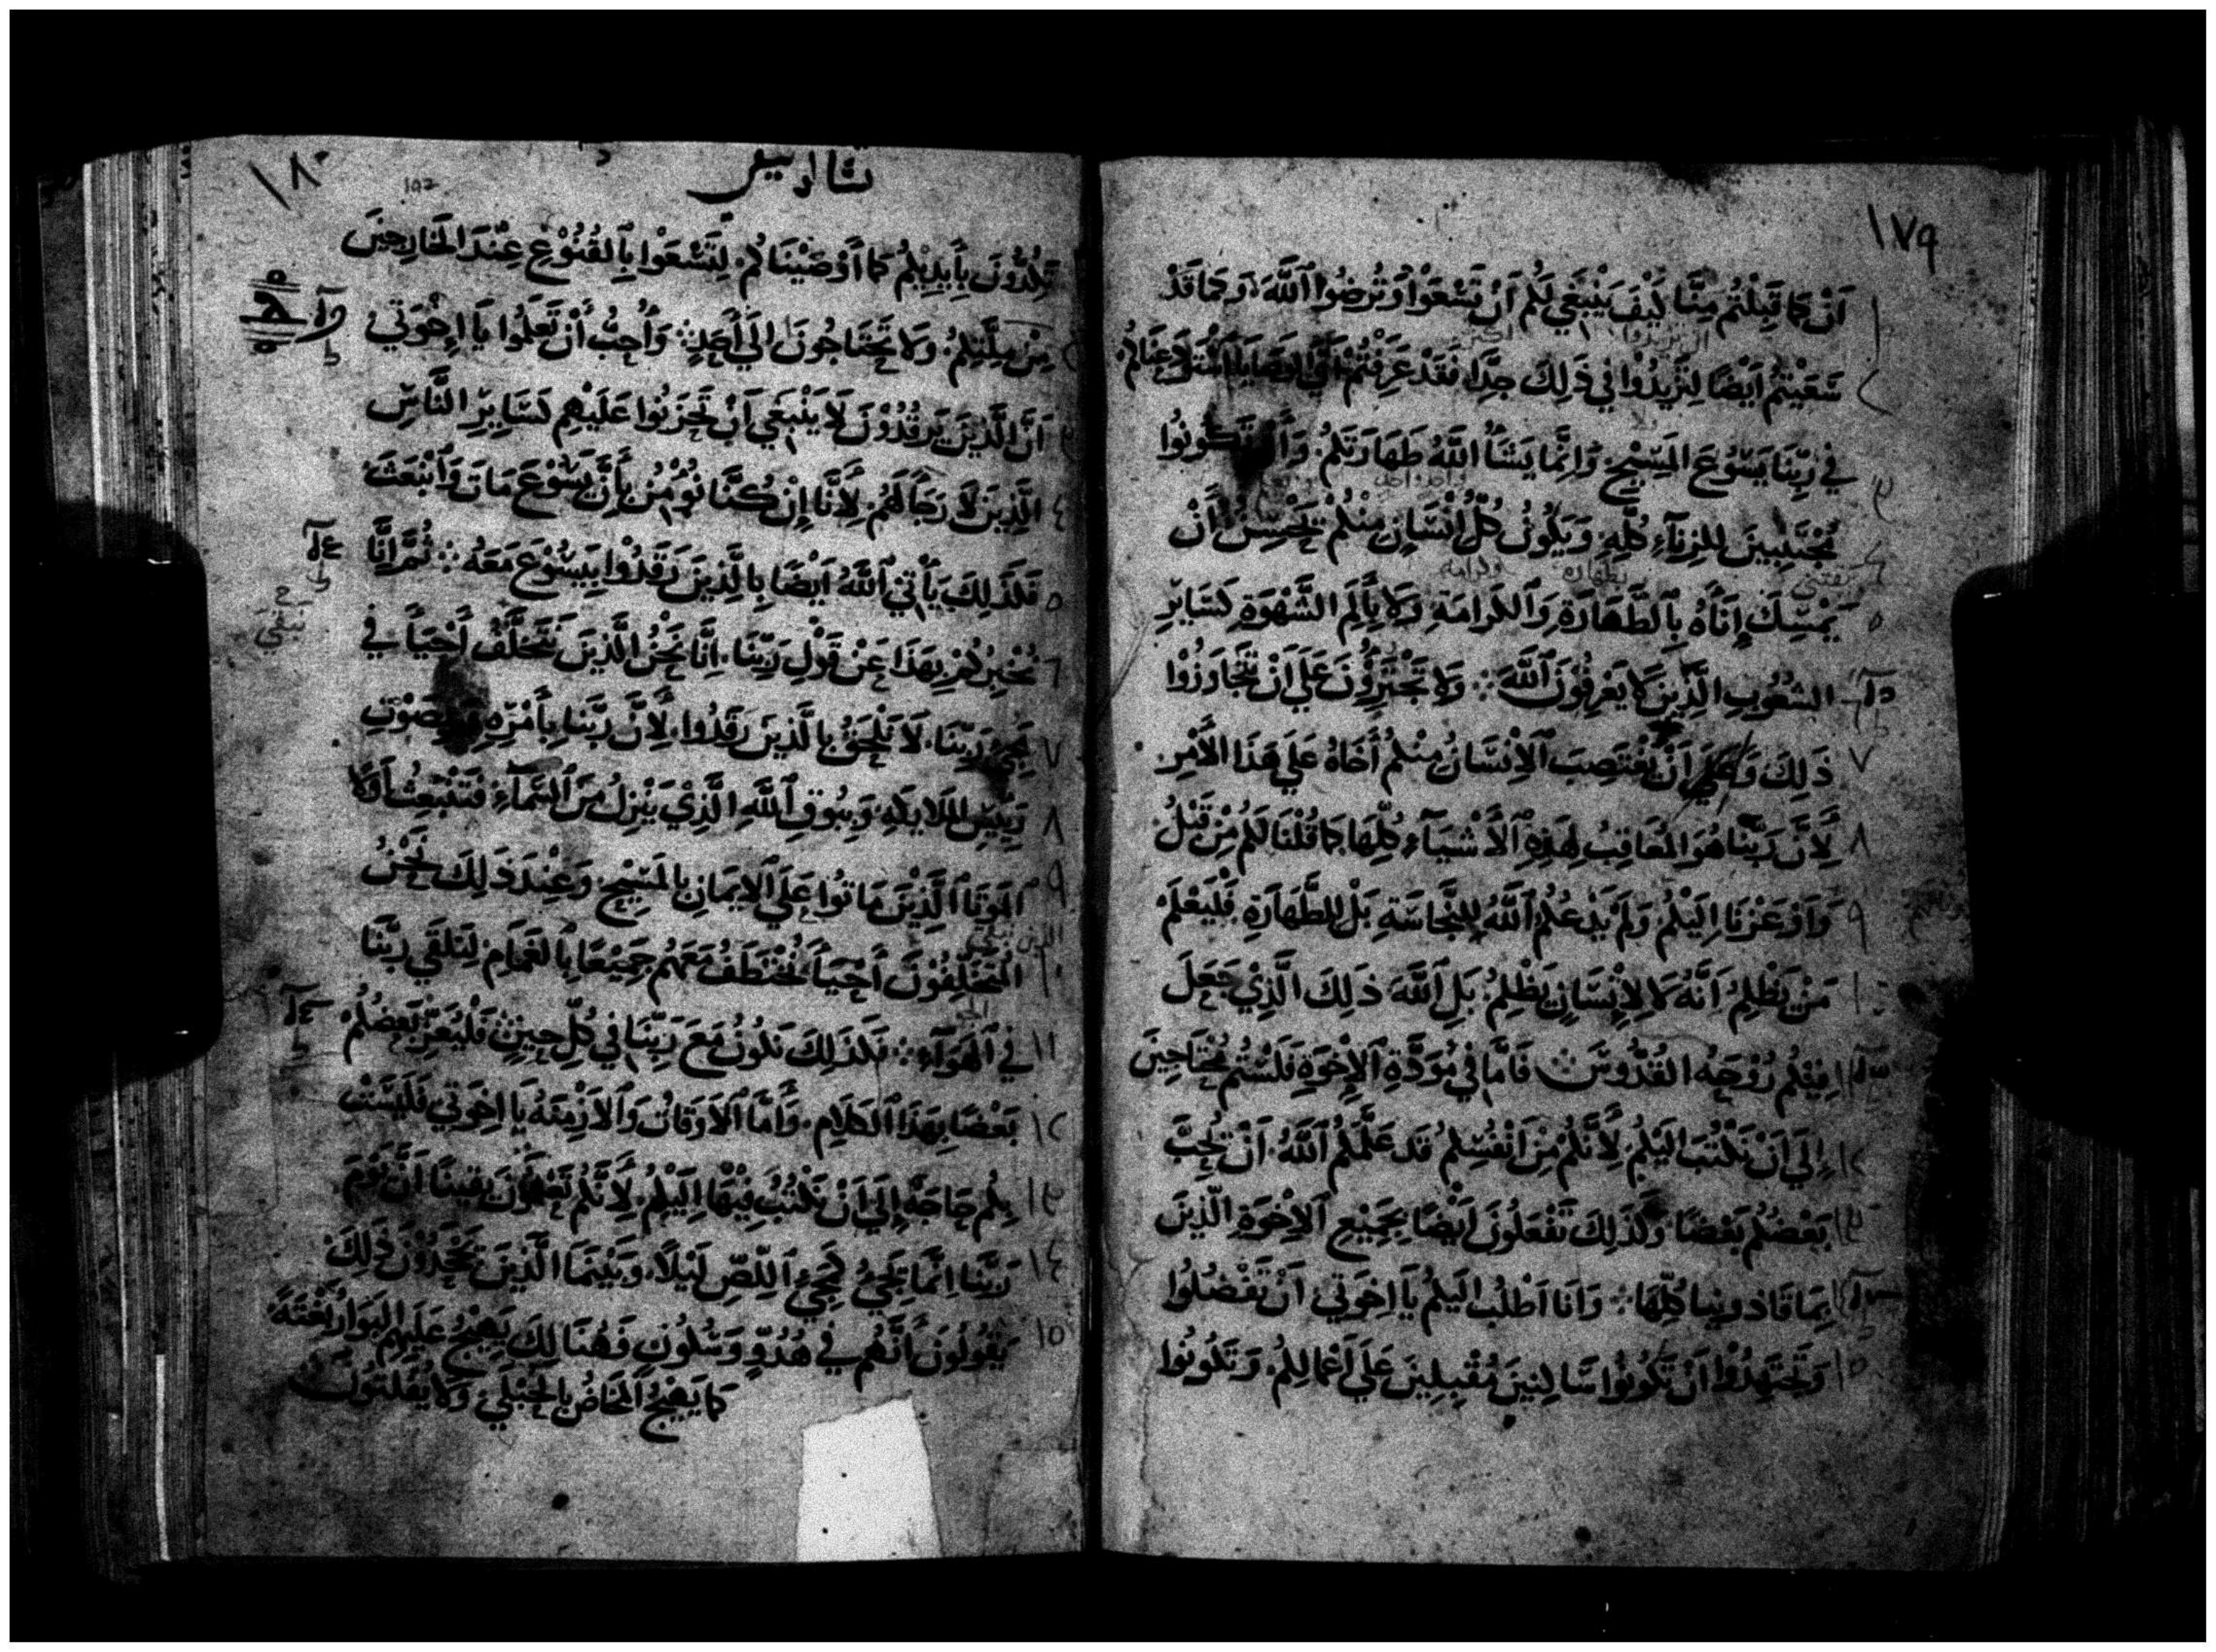 ١٧٩
أَنْ كَمَا قَبِلْتُمْ مِنَّا كَيْفَ يَنْبَغِي لَكُمْ أَنْ تَسْعَوْا وَتُرْضُوا ٱللَّهَ، وَكَمَا قَدْ
سَعَيْتُمْ أَيْضًا لِتَزِيدُوا فِي ذَلِكَ جِدًّا فَقَدْ عَرَفْتُمْ
فِي رَبِّنَا يَسُوعَ المَسِيحِ وَإِنَّمَا يَشَأُ اللَّهُ طَهَارَتَكُمْ وَأَنْ تَكُونُوا
مُجْتَنِبِينَ لِلزِنَاءِ كُلِّهِ وَيَكُونُ كُلُّ إِنْسَانٍ مِنْكُمْ يُحْسِنُ أَنْ
يَمْسِكَ إِنَآءَهُ بِٱلطَّهَارَةِ وَٱلكَرَامَةِ وَلَا بِأَلَمِ الشَّهْوَةِ كَسَايِرِ
الشُعُوبِ الَّذِينَ لَا يَعْرِفُونَ ٱللَّهَ ܀ وَلَا تَجْتَرِؤُنَ عَلَى أَنْ تَتَجَاوَزُوا
ذَلِكَ وَعَلَى أَنْ يَغْتَصِبَ ٱلْإِنْسَانُ مِنْكُمْ أَخَاهُ عَلَى هَذَا الأَمْرِ
لِأَنَّ رَبَّنَا هُوَ المُعَاقِبُ لِهَذِهِ ٱلأَشْيَآءِ كُلِّهَا كَمَا قُلْنَا لَكُمْ مِنْ قَبْلُ
وَأَوْعَزْنَا إِلَيْكُمْ وَلَمْ يَدْعُكُمُ ٱللَّهُ لِلنَّجَاسَةِ بَلْ لِلطَّهَارَةِ فَلْيَعْلَمْ
مَنْ يَظْلِمُ أَنَّهُ لَا لِإِنْسَانٍ يَظْلِمُ بَلِ ٱللَّهَ ذَلِكَ الَّذِي جَعَلَ
فِيْكُمْ رُوْحَهُ القُدُّوسَ ܀ فَأَمَّا فِي مَوَدَّةِ ٱلإِخْوَةِ فَلَسْتُمْ مُحْتَاجِينَ
إِلَى أَنْ نَكْتُبَ إِلَيْكُمْ لِأَنَّكُمْ مِنْ أَنْفُسِكُمْ قَدْ عَلَّمَكُمُ ٱللَّهُ أَنْ يُحِبَّ
بَعْضُكُمْ بَعْضًا وَكَذَلِكَ تَفْعَلُونَ أَيْضًا بِجَمِيْعِ ٱلإِخْوَةِ الَّذِينَ
بِمَاقَاذونِيا كُلِّهَا ܀ وَأَنَا أَطْلُبُ إِلَيكُمْ يَا إِخْوَتِي أَنْ تَفْضُلُوا
وَتَجْتَهِدُوا أَنْ تَكُونُوا سَاكِنِينَ مُقْبِلِينَ عَلَى أَعْمَالِكُمْ وَتَكُونُوا
١٨٠
تَكِدُّونَ بِأَيْدِيْكُمْ كَمَا أَوْصَيْنَاكُمْ لِتَسْعَوْا بِٱلقُنُوْعِ عِنْدَ الخَارِجِينَ
مِنْ مِلَّتِكُمْ وَلَا تَحْتَاجُونَ إِلَى أَحَدٍ ܀ وَأُحِبُّ أَنْ تَعْلَمُوا يَا إِخْوَتِي
أَنَّ الَّذِينَ يَرْقُدُوْنَ لَا يَنْبَغِي أَنْ تَحْزَنُوا عَلَيْهِم كَسَايِرِ النَّاسِ
الَّذِينَ لَا رَجَأَ لَهُمْ لِأَنَّا إِنْ كُنَّا نُؤْمِنُ بِأَنَّ يَسُوْعَ مَاتَ وَٱنْبَعَثَ
فَكَذَلِكَ يَأْتِي ٱللَّهُ أَيْضًا بِالَّذِينَ رَقَدُوْا بِيَسُوْعَ مَعَهُ ܀ ثُمَّ إِنَّا
نُخْبِرُكُمْ بِهَذَا عَنْ قَوْلِ رَبِّنَا، إِنَّا نَحْنُ الَّذِينَ نَتَخَلَّفُ أَحْيَاءً فِي
مَجِيْ رَبِّنَا لَا نَلْحَقُ بِالَّذِينَ رَقَدُوا لِأَنَّ رَبَّنَا بِأَمْرِهِ وَبِصَوْتِ
رَيِيْسِ المَلَايِكَةِ وَبِبُوقِ ٱللَّهِ الَّذِيْ يَنْزِلُ مِنَ ٱلسَّمَآءِ فَتَنْبَعِثُ أَوَّلًا
المَوتَا ٱلَّذِيْنَ مَاتُوا عَلَى ٱلإِيمَانِ بِالمَسِيْحِ وَعِنْدَ ذَلِكَ نَحْنُ
المُتَخَلِّفُوْنَ أَحْيَاءً نُخْتَطَفُ مَعَهُمْ جَمِيْعًا بِٱلغَمَامِ لِنَلقَى رَبَّنَا
فِي ٱلهَوَآءِ ܀ فَكَذَلِكَ نَكُونُ مَعَ رَبِّنَا فِي كُلِّ حِينٍ فَلْيُعَزِّ بَعْضُكُمْ
بَعْضًا بِهَذَا ٱلكَلَامِ وَأَمَّا ٱلأَوقَاتُ وَٱلأَزْمِنَةُ يَا إِخْوَتِي فَلَيْسَتْ
بِكُمْ حَاجَةٌ إِلَى أَنْ نَكْتُبَ فِيْهَا إِلَيْكُمْ لِأَنَّكُمْ تَعْلَمُونَ يَقِينًا أَنَّ يَوْمَ
رَبِّنَا إِنَّمَا يَجِيْ كَمَجِيْ ٱللِّصِّ لَيْلًا، وَبَيْنَمَا الَّذِينَ يَجْحَدُوْنَ ذَلِكَ
يَقُولُونَ أَنَّهُم فِي هُدُوٍّ وَسُكُونٍ فَهُنَالِكَ يَهِيْجُ عَلَيْهِم البَوَارُ بَغْتَةً
كَمَا يَهِيْجُ المَخَاضُ بِالحُبْلَى وَلَا يُفْلِتُونَ